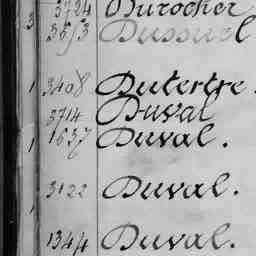 3724 Durocher
3 3573 Dussuel
1 3408 Dutertre.
3714 Duval
1 1637 Duval.
3122 Duval.
1
1344 Duval.